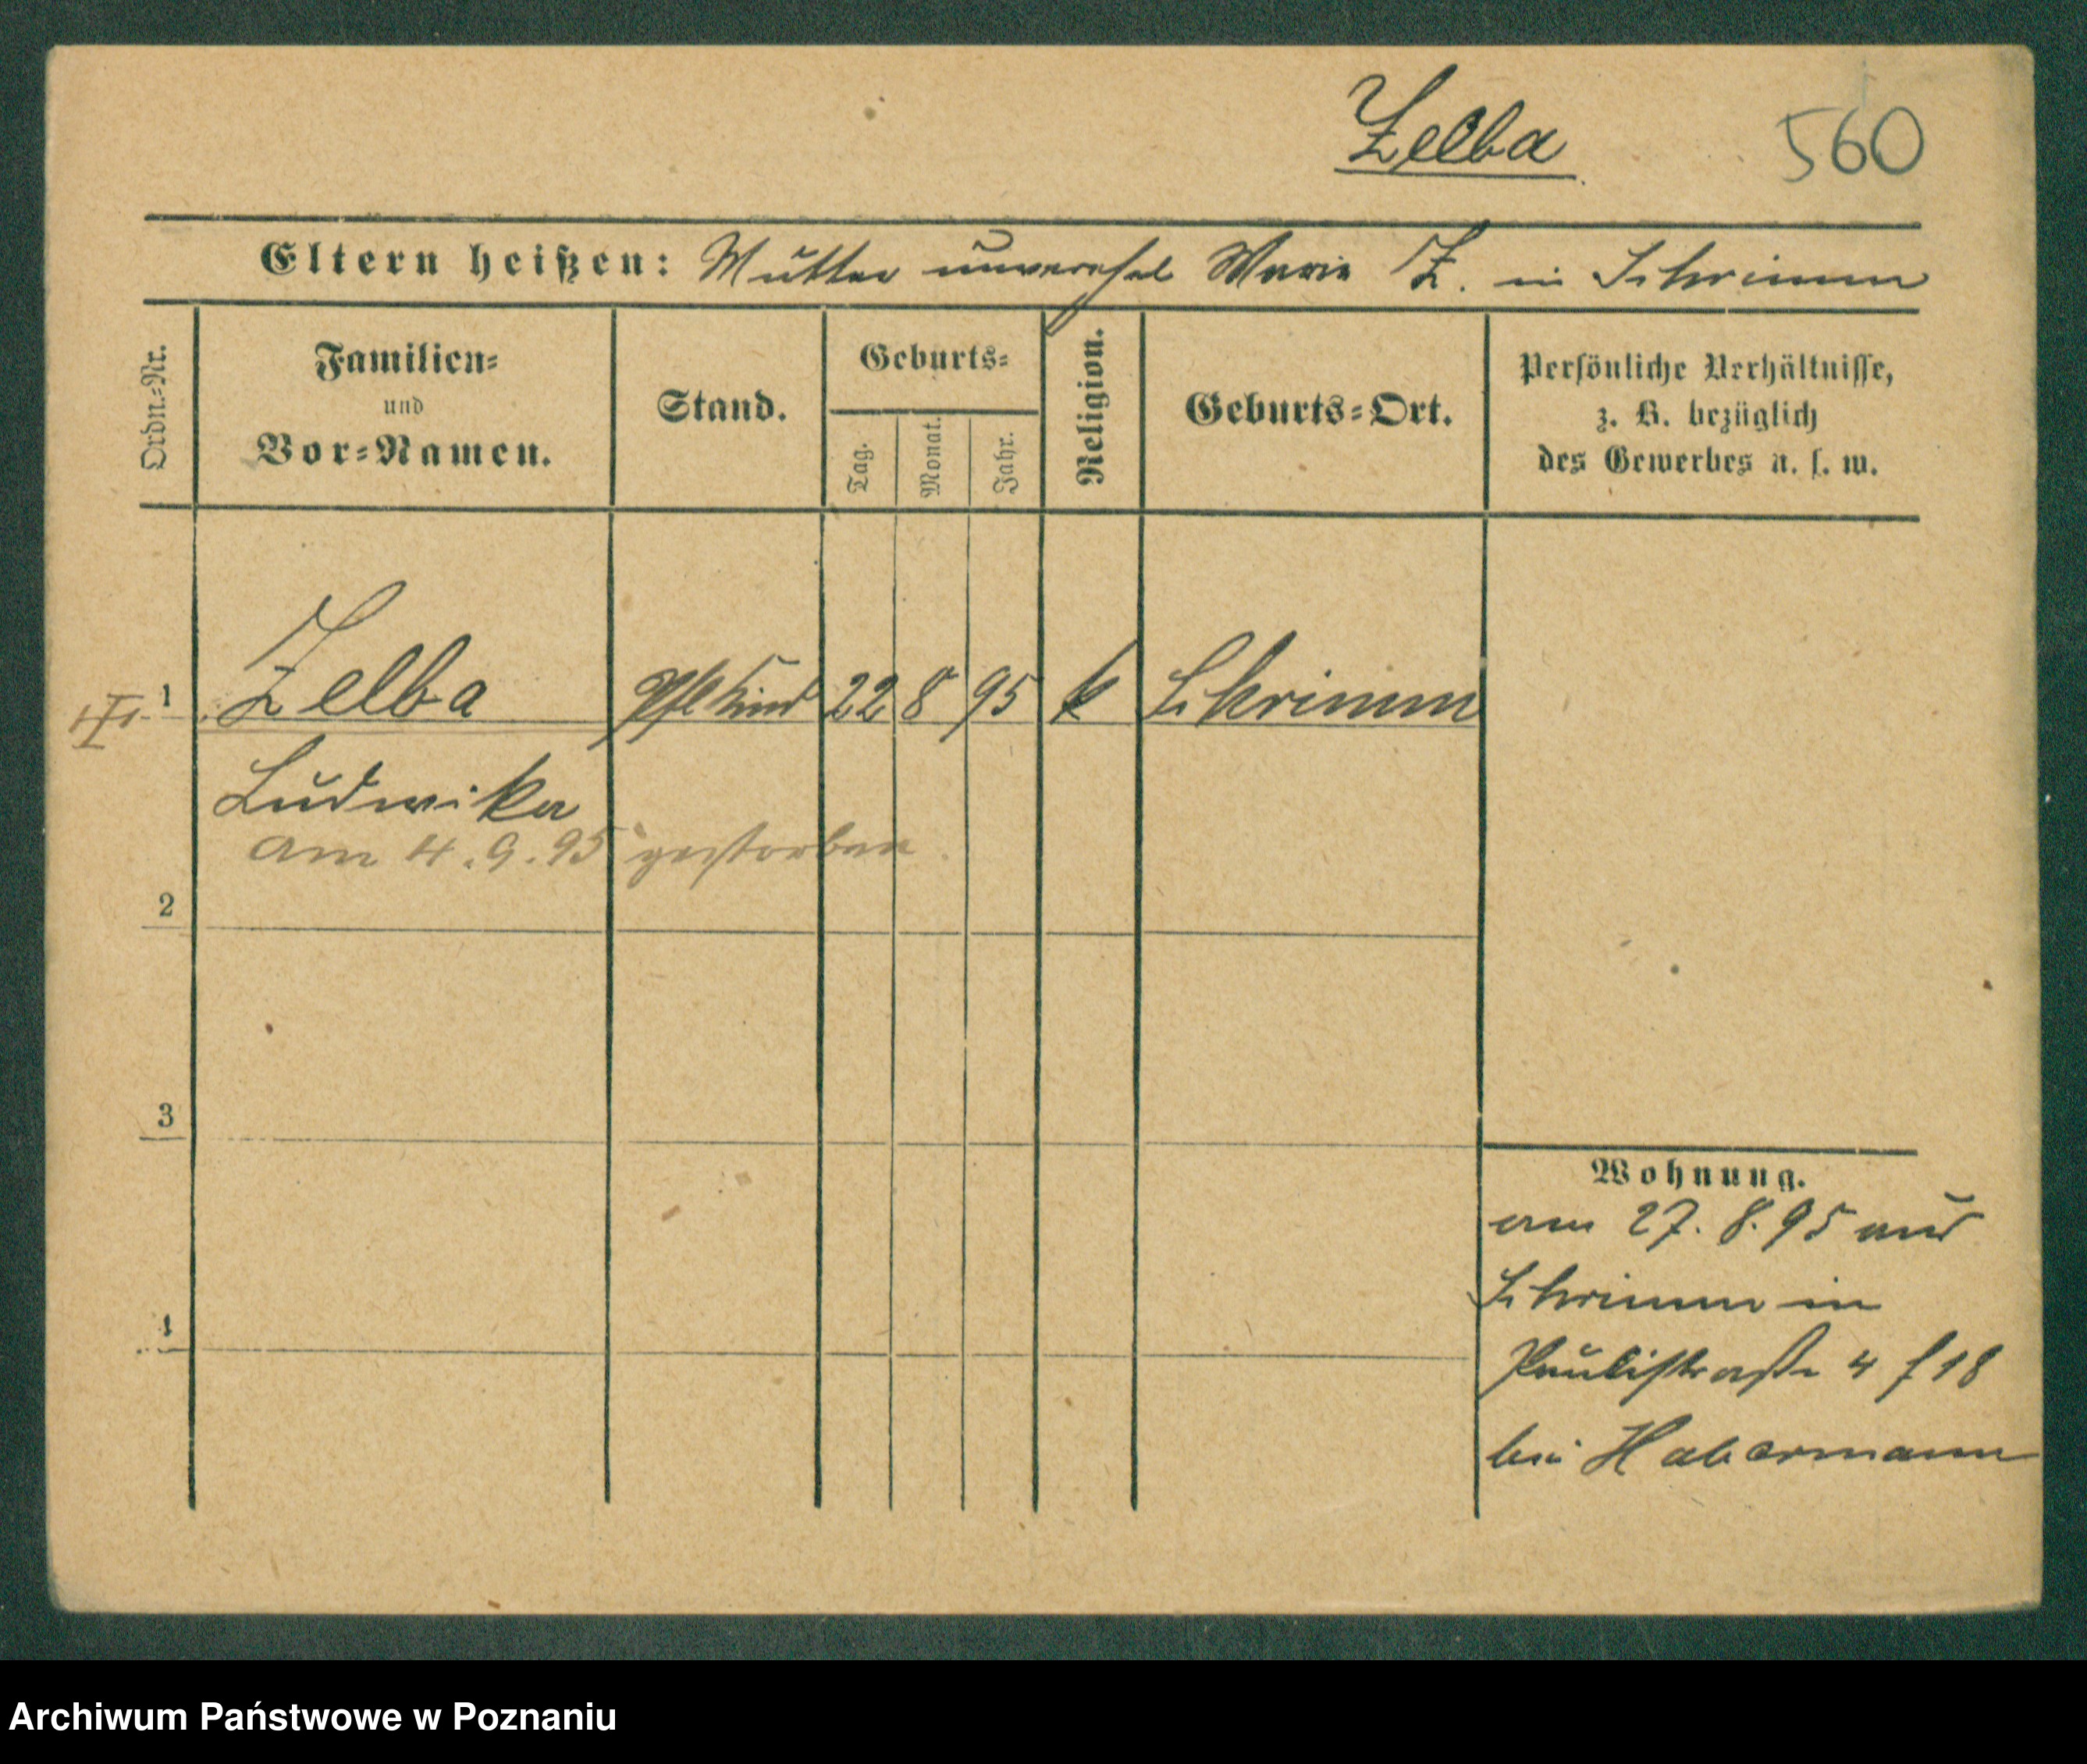 Zelba 560
Eltern heißen: Mutter unverehel Marie Z. in Schrimm
Ordn.=Nr.
Familien=
und
Vor=Namen.
Stand.
Geburts=
Tag.
Monat.
Jahr.
Religion.
Geburts=Ort.
Persönliche Verhältnisse,
z. B. bezüglich
des Gewerbes u. s. w.
1 Zelba Pflkind 22 8 95 k Schrimm
Ludwika
am 4.9.95 gestorben.
2
3
4
Wohnung.
am 27.8.95 aus
Schrimm in
Paulistraße 4
bei Habermann
Archiwum Państwowe w Poznaniu